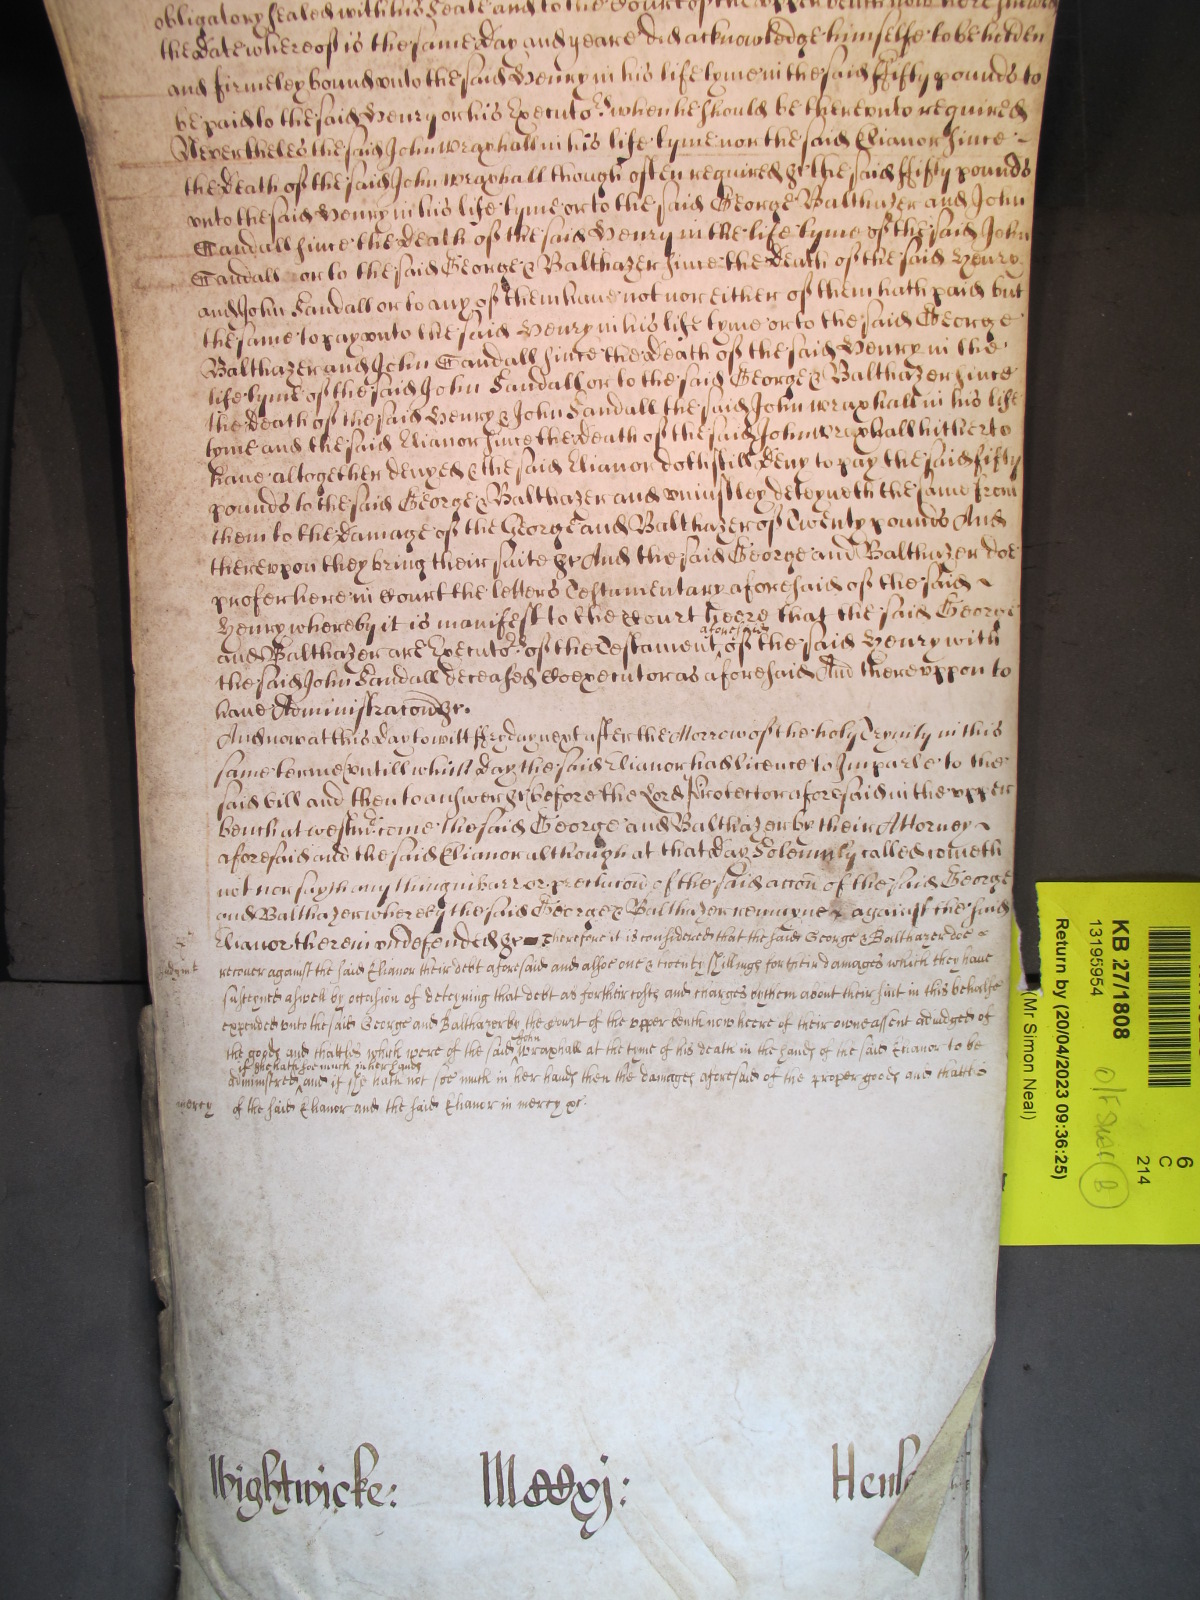 obligatory sealed with his seale and to the Court of the vpper bench now here shewed
the date whereof is the same day and yeare did acknowledge himselfe to be holden
and firmeley bound vnto the said Henry in his life tyme in the said ffifty pounds to
be paid to the said Henry or his Executors when he should be therevnto required
Neverthelesthe said John Wraxhall in his life tyme nor the said Elianor since
the death of the said John Wraxhall though often required &c the said ffifty pounds
vnto the said Henry in his life tyme or to the said George Balthazer and John
Candall since the death of the said Henry in the life tyme of the said John
Candall or to the said George & Balthazer since the death of the said Henry
and John Candall or to any of them haue not nor either of them hath paid but
the same to pay vnto the said Henry in his life tyme or to the said George
Balthazer and John Candall since the death of the said Henry in the
life tyme of the said John Candall or to the said George & Balthazer since
the death of the said Henry & John Candall the said John Wraxhall in his life
tyme and the said Elianor since the death of the said John Wraxhall hitherto
haue altogether denyed & the said Elianor doth still deny to pay the said fifty
pounds to the said George & Balthazer and vniustley deteyneth the same from
them to the damage of the George and Balthazer of Twenty pounds And
therevpon they bring their suite &c And the said George and Balthazer doe
profer here in Court the letters Testamentary aforesaid of the said
Henry whereby it is manifest to the Court heere that the said George
and Balthazer are Executors of the Testament aforesaid of the said Henry with
the said John Candall deceased Coexecutor as aforesaid And therevppon to
haue Administracon &c.
And now at this day to witt ffryday next after the Morrow of the holy Trynity in this
same terme vntill which day the said Elianor had licence to Imparle to the
said bill and then to answer &c before the Lord Protector aforesaid in the vpper
bench at westmr come the said George and Balthazer by their Attorney
aforesaid and the said Elianor although at that day Solemnly called cometh
not nor sayth any thing in barr or preclucon of the said accon of the said George
and Balthazer whereby the said George & Balthazer remayne against the said
Elianor therein vndefended &c Therefore it is considered that the said George & Balthazer doe
Judgmt
recouer against the said Elianor their debt aforesaid and alsoe one & twenty shillings for their damages which they haue
susteyned aswell by occasion of deteyning that debt as for their costs and charges by them about their suit in this behalfe
expended vnto the said George and Balthazer by the Court of the vpper bench now heere of their owne assent adiudged of
the goods and chattles which were of the said John Wraxhall at the tyme of his death in the hands of the said Elianor to be
administred if she hath soe much in her hands and if she hath not soe much in her hands then the damages aforesaid of the proper goods and chattles
mercy
of the said Elianor and the said Elianor in mercy &c.
Wightwicke:
Henl
KB 27/1808
13195954
Return by (20/04/2023 09:36:25)
(Mr Simon Neal)
6
C
214
B